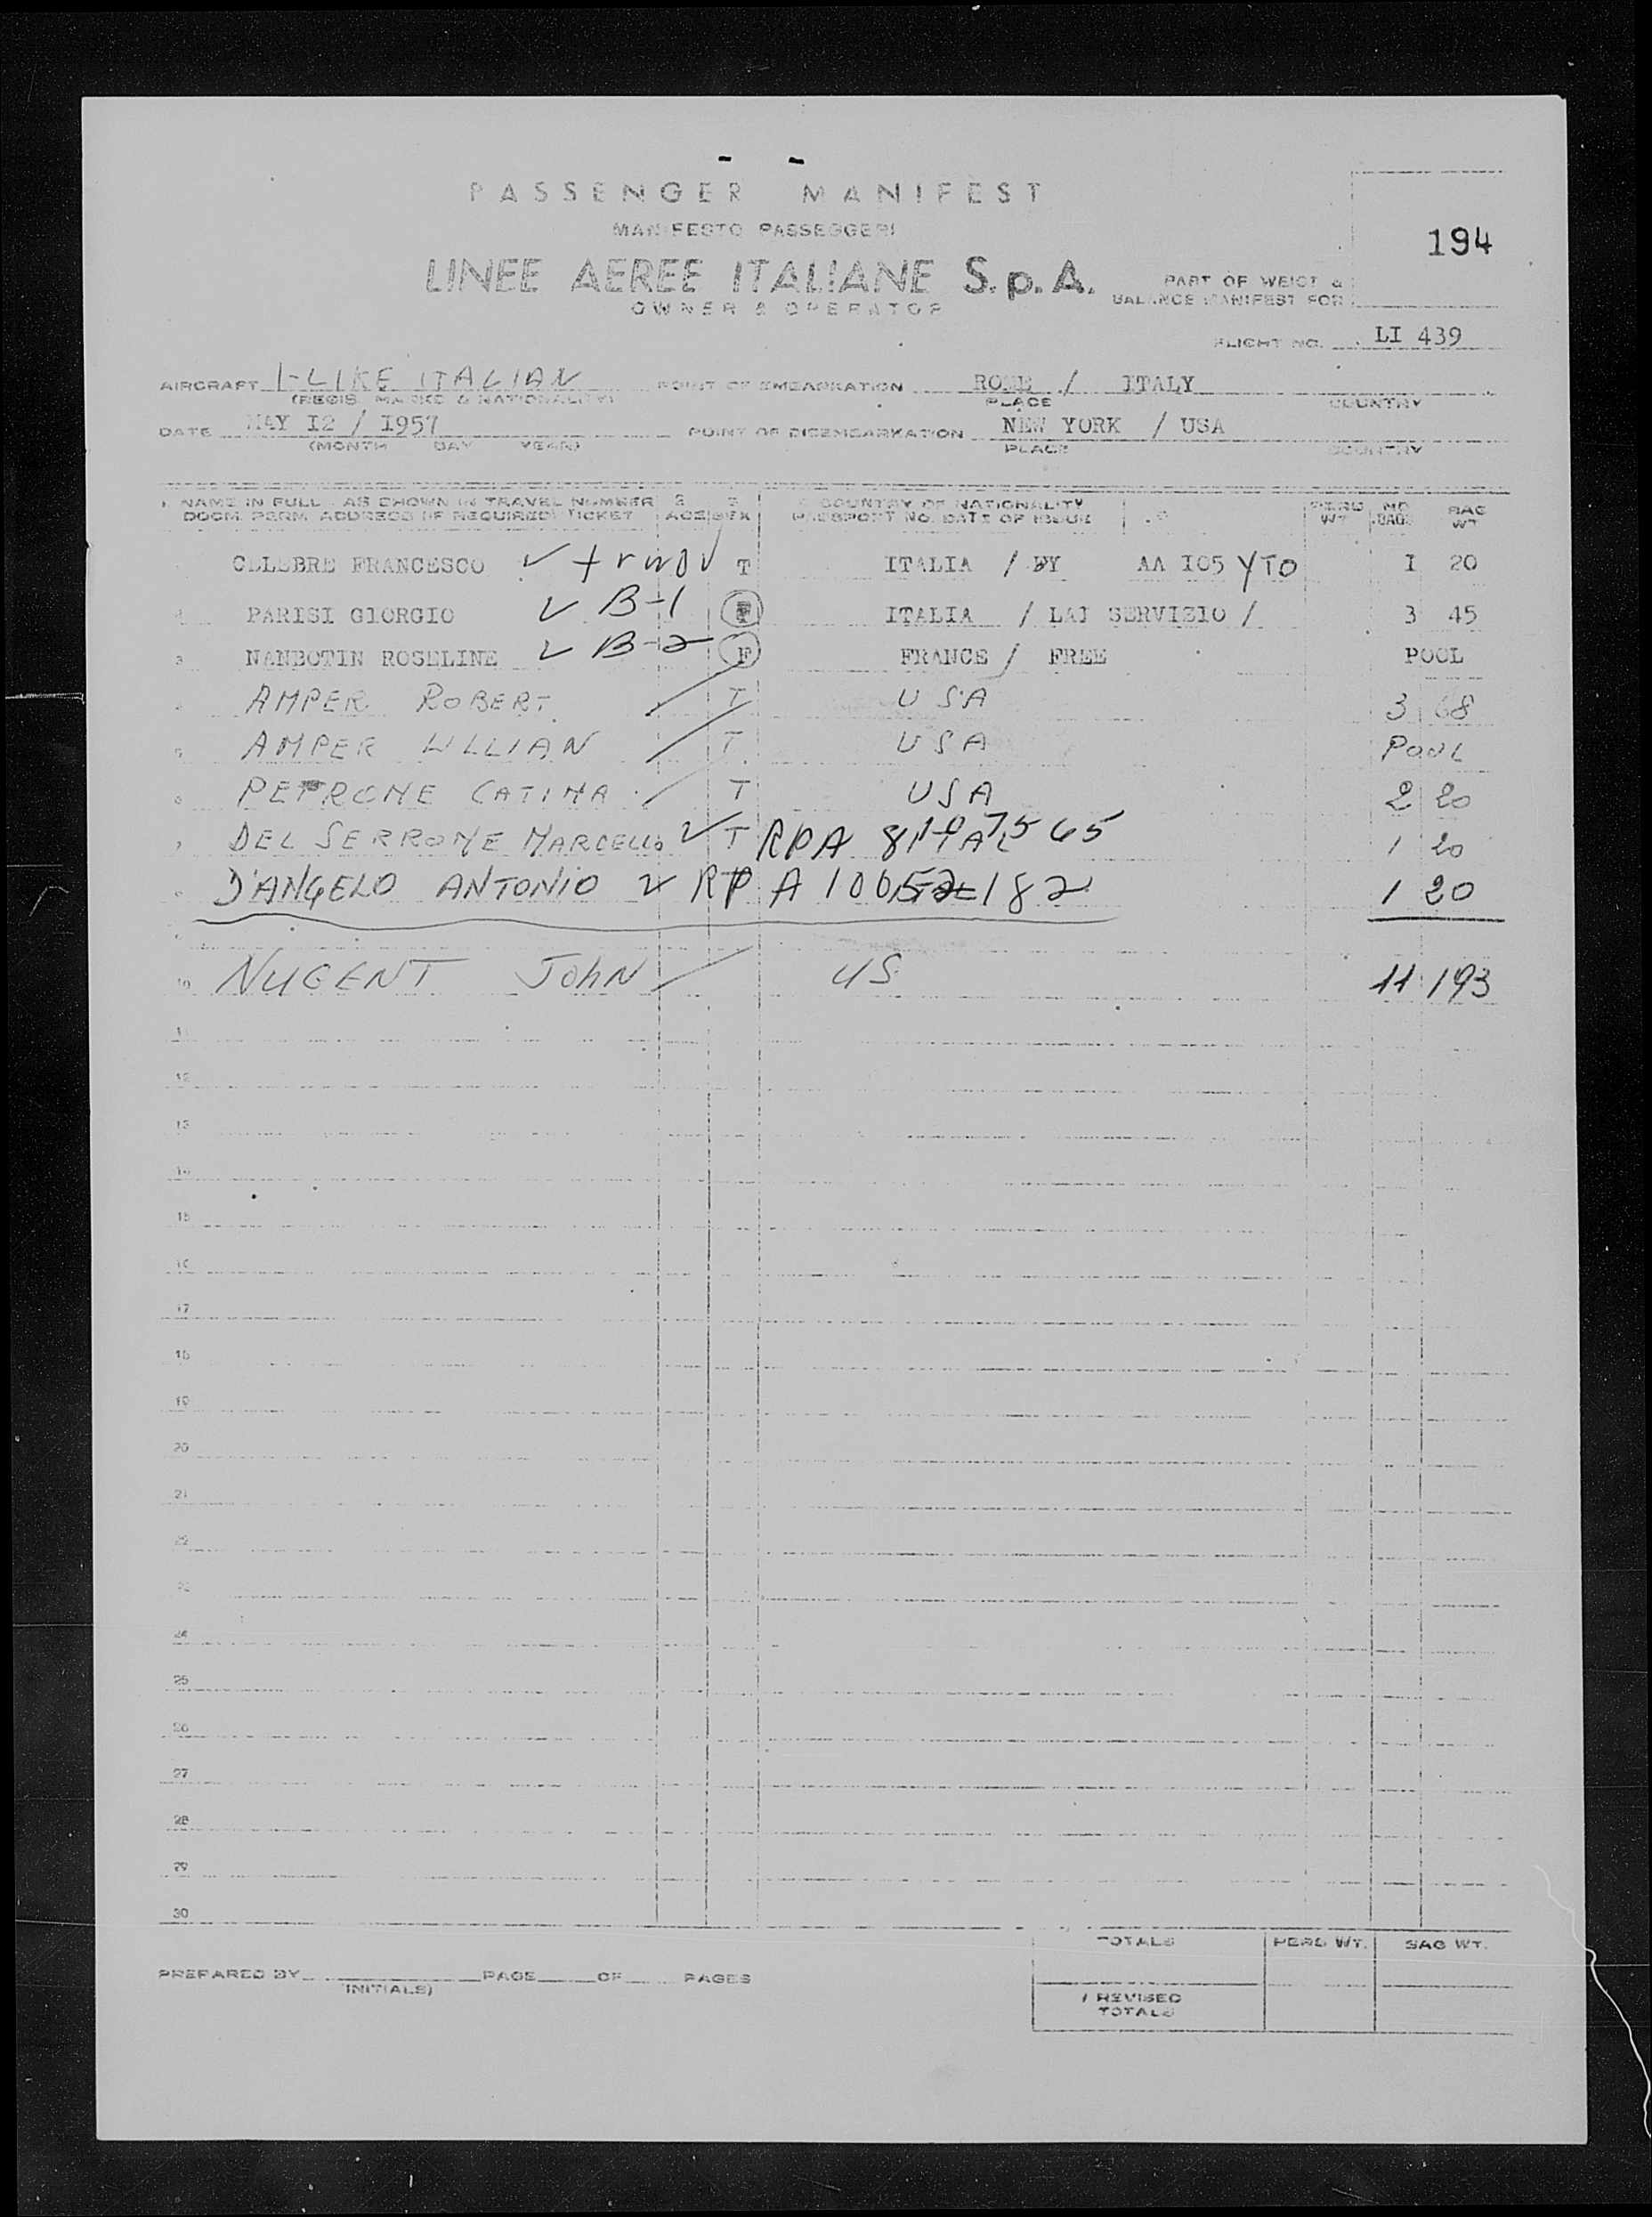 PASSENGER MANIFEST
MANIFESTO PASSEGGERI
194
LINEE AEREE ITALIANE S.p.A.
OWNER & OPERATOR
PART OF WEIGT &
BALANCE MANIFEST FOR
FLIGHT NO. LI 439
AIRCRAFT I-LIKE ITALIAN POINT OF EMBARKATION ROME / ITALY
(REGIS. MARKS & NATIONALITY) PLACE COUNTRY
DATE MAY I2 / I957 POINT OF DISEMBARKATION NEW YORK / USA
(MONTH DAY YEAR) PLACE COUNTRY
1 NAME IN FULL AS SHOWN IN TRAVEL NUMBER 2 3 COUNTRY OF NATIONALITY PERS NO BAG
DOCM. PERM. ADDRESS (IF REQUIRED) TICKET AGE SEX PASSPORT NO. DATE OF ISSUE WT BAGS WT
CELEBRE FRANCESCO ✓ T ITALIA / BY AA I05 YTO I 20
PARISI GIORGIO ✓ B-1 F ITALIA / LAI SERVIZIO / 3 45
3 NANBOTIN ROSELINE ✓ B-2 F FRANCE / FREE POOL
AMPER ROBERT T USA 3 68
5 AMPER LILLIAN T USA POOL
6 PETRONE CATINA T USA 2 20
7 DEL SERRONE MARCELLO ✓ T RPA 1 20
D'ANGELO ANTONIO ✓ RP A 182 1 20
10 NUGENT JOHN US 11 193
11
12
13
14
15
16
17
18
19
20
21
22
23
24
25
26
27
28
29
30
TOTALS PERS WT. BAG WT.
PREPARED BY PAGE OF PAGES
(INITIALS)
REVISED
TOTALS